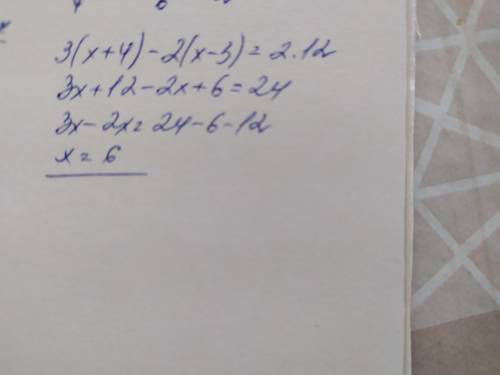 3(x+4)-2(x-3)=2.12
3x+12-2x+6=24
3x-2x=24-6-12
x=6